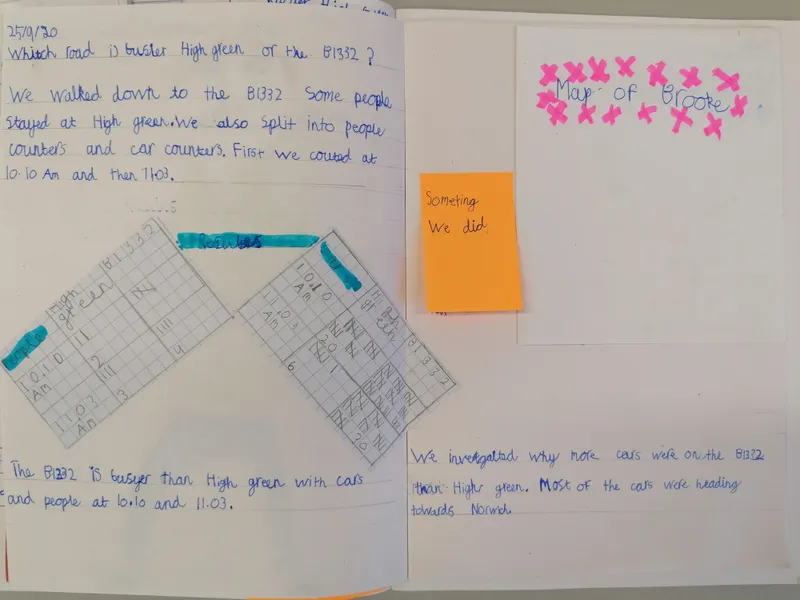 25/9/20
Whitch road is busier High green or the B1332 ?
We walked down to the B1332 Some people
stayed at High green. We also split into people
counters and car counters. First we couted at
10.10 Am and then 11.03.
Results
People
High green
B1332
10.10 Am
11.03 Am
2
3
4
High green
B1332
10.10 Am
11.03 Am
20
6
20
The B1332 is busyer than High green with cars
and people at 10.10 and 11.03.
Someting
We did
Map of Brooke
We investgated why more cars were on the B1332
than High green. Most of the cars were heading
towards Norwich.